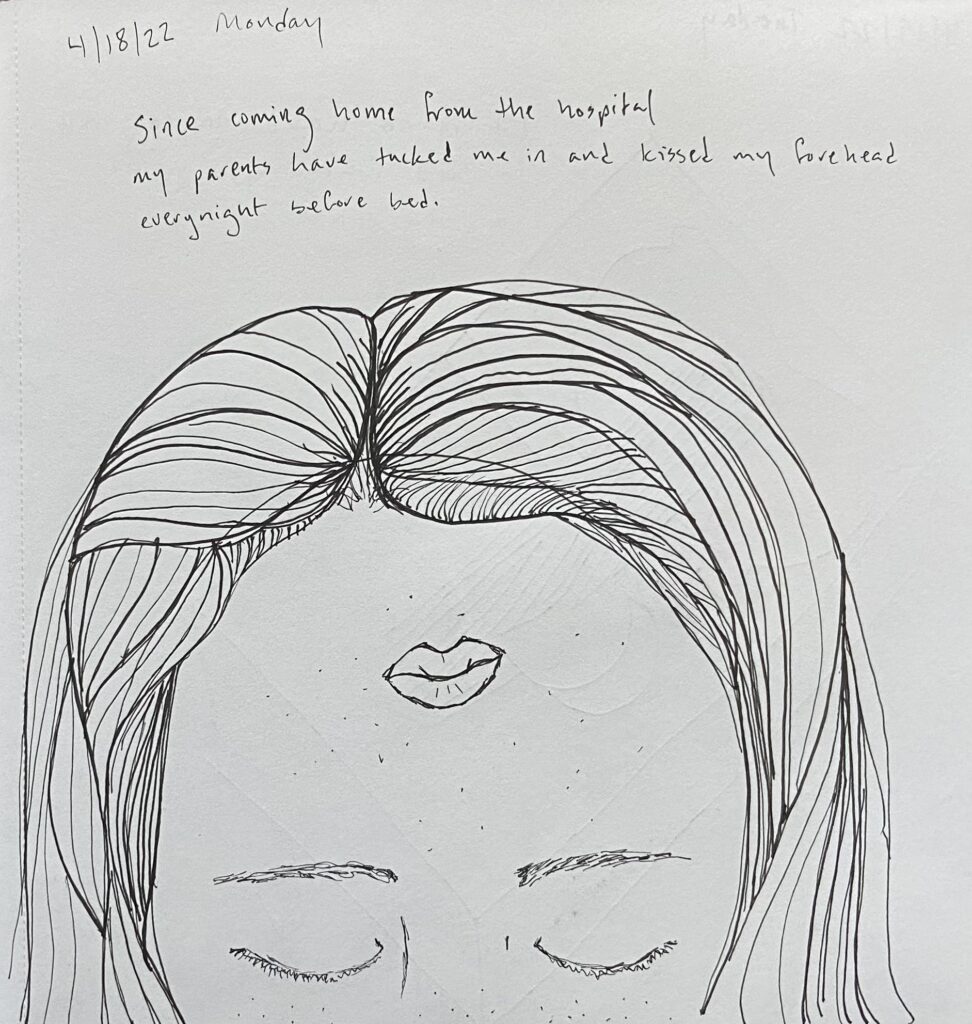 4/18/22 Monday
Since coming home from the hospital
my parents have tucked me in and kissed my forehead
everynight before bed.